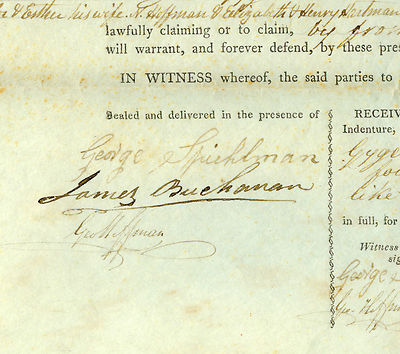 & Esther his wife, A. Hoffman & Elizabeth & Henry Hartman
lawfully claiming or to claim, by from
will warrant, and forever defend, by these pres
IN WITNESS whereof, the said parties to
Sealed and delivered in the presence of
George Spichlman
James Buchanan
Geo Hoffman
RECEIV
Indenture,
Gyge
fou
like
in full, for
Witness
sig
George
Geo. Hoffm